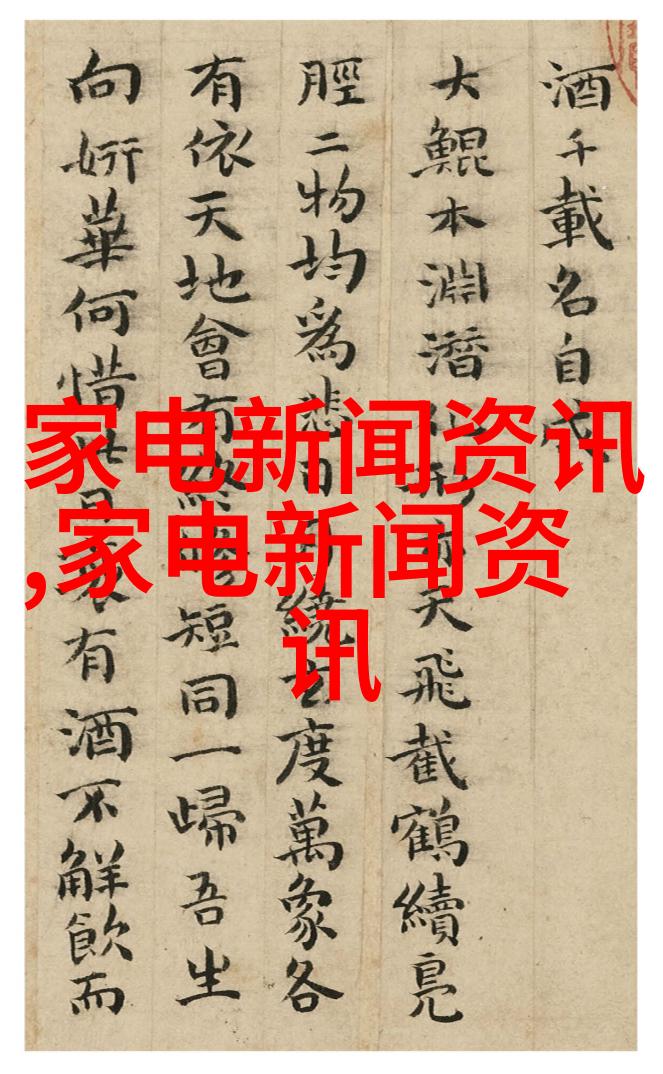 酒千載名自
大鯤本淵潛天飛截鶴續鳧
脛二物均為悲日月繞玄度萬象各
有依天地會有終脩短同一歸吾生
向妍華何惜此日衰有酒不解飲而
家电新闻资讯
,家电新闻资
讯